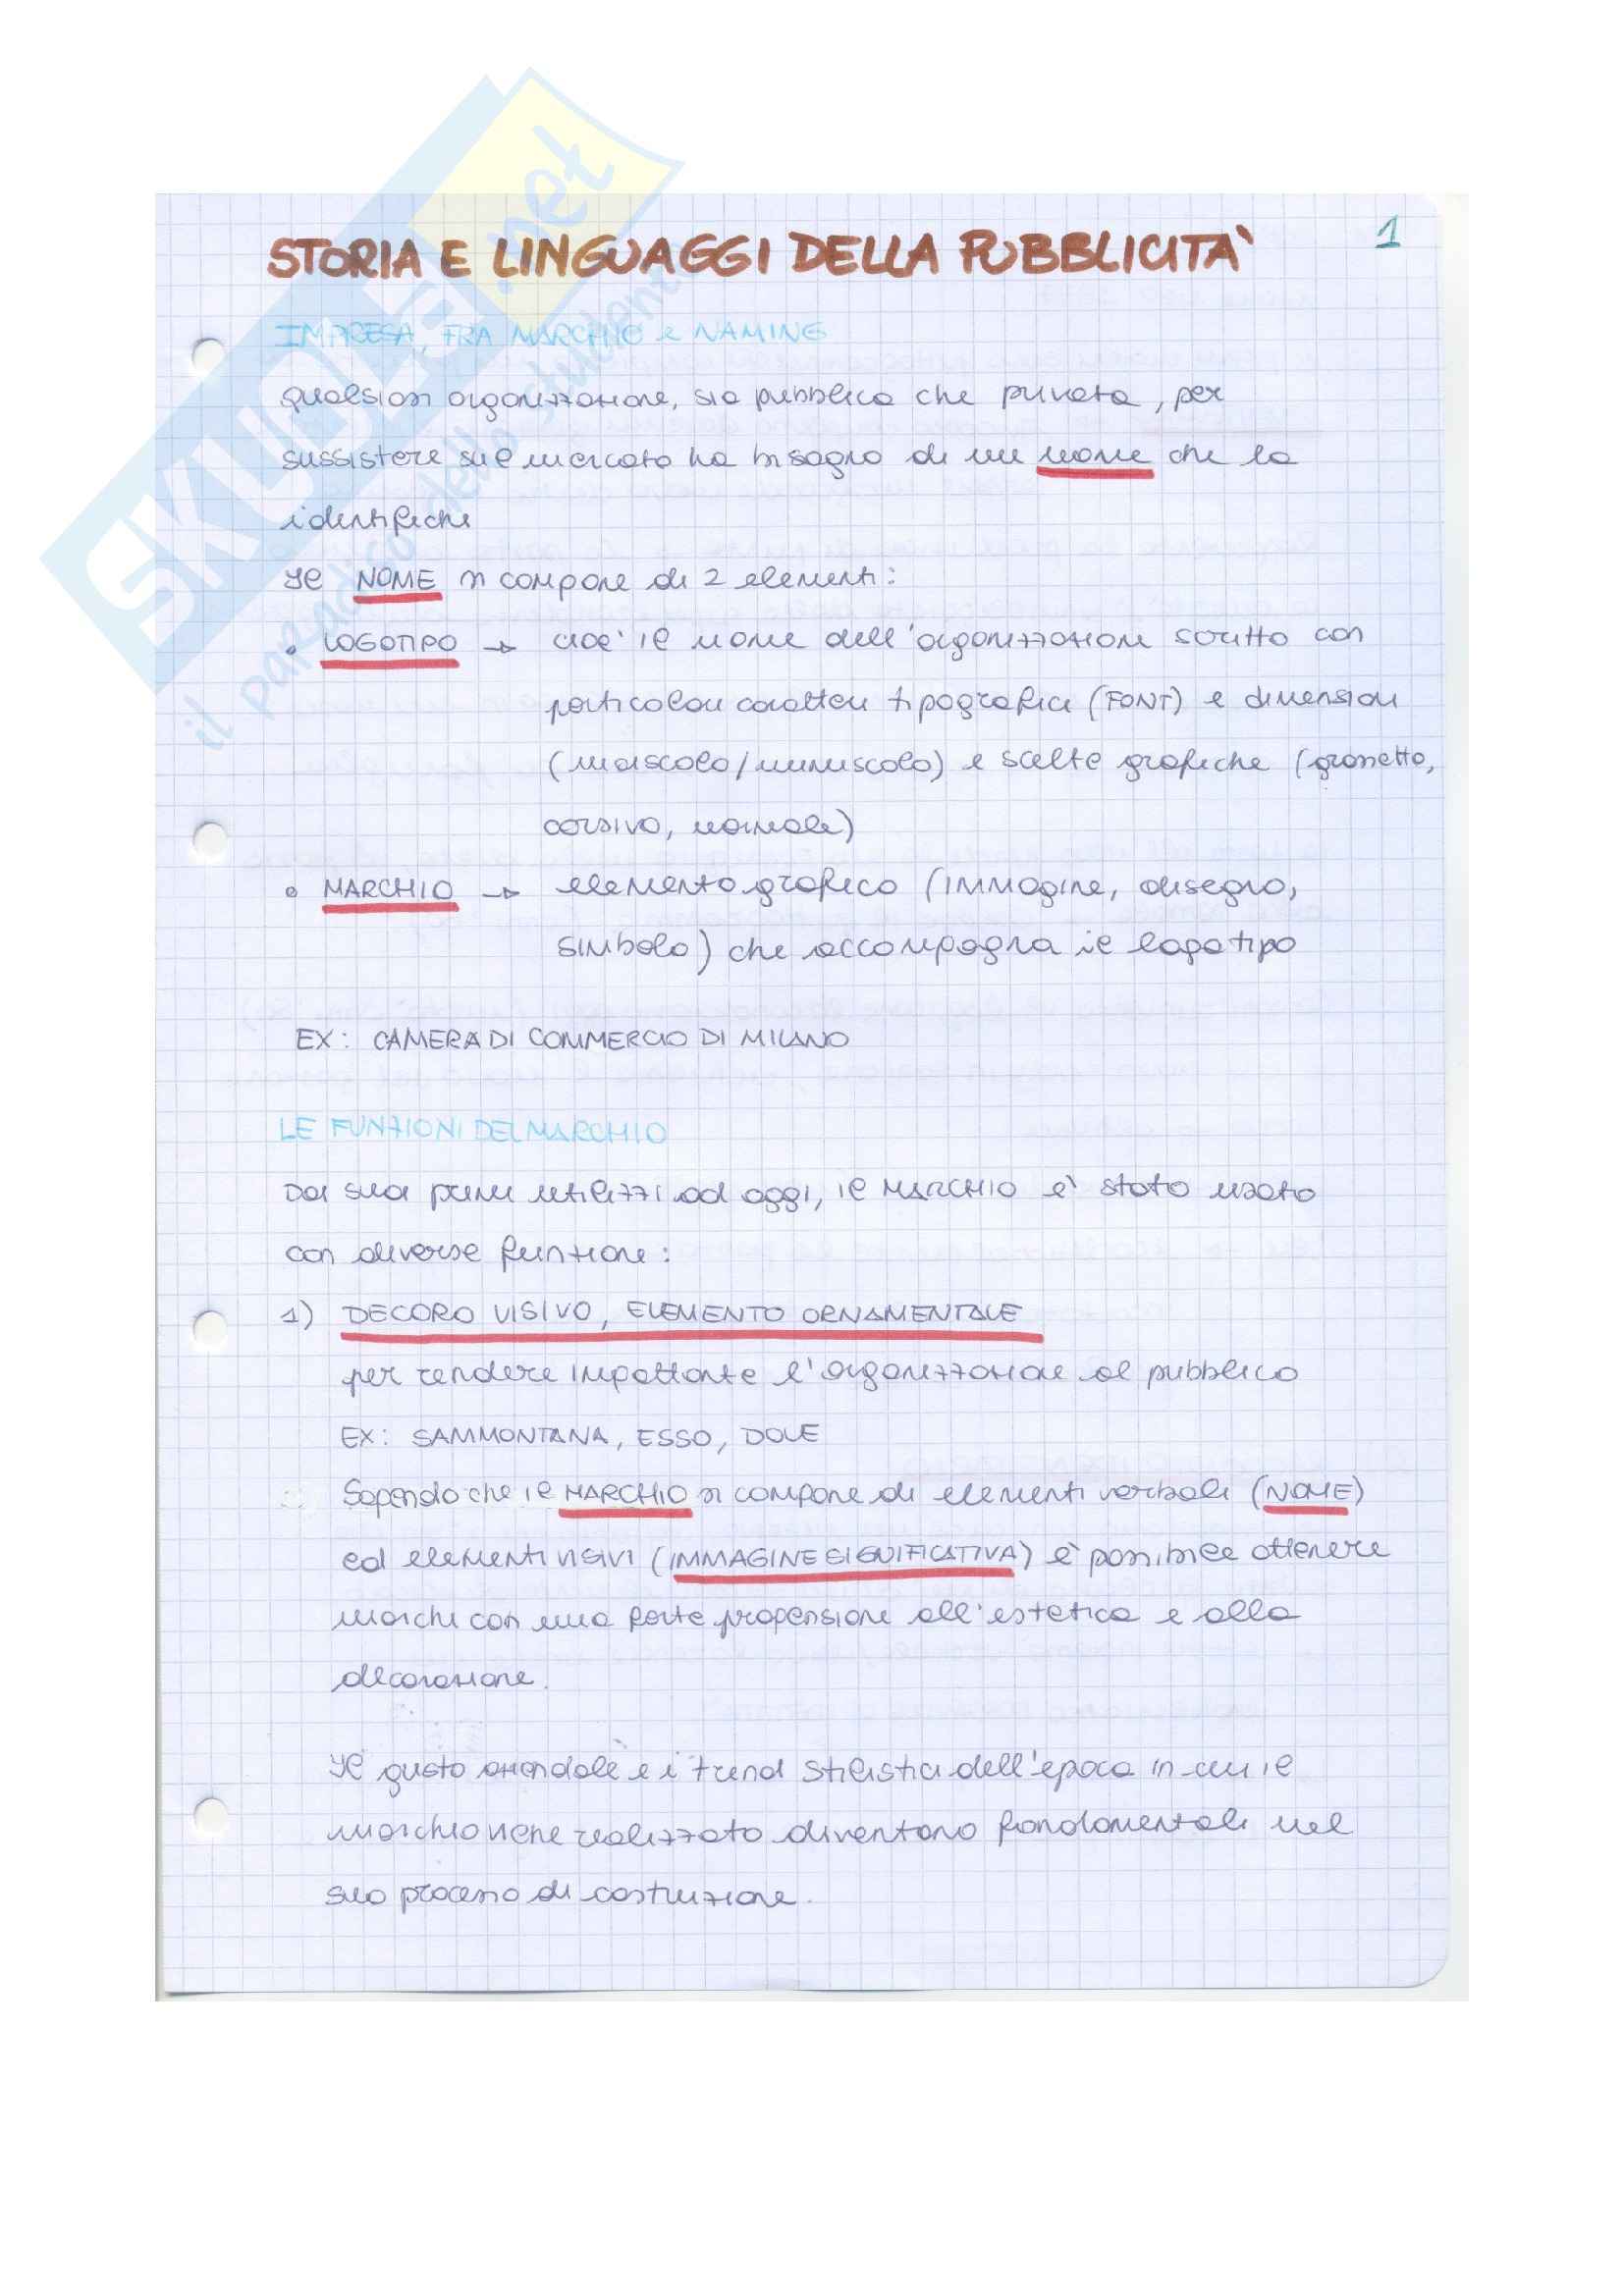 STORIA E LINGUAGGI DELLA PUBBLICITA'
1
IMPRESA, FRA MARCHIO e NAMING
Qualsiasi organizzazione, sia pubblica che privata, per
sussistere sul mercato ha bisogno di un nome che la
identifichi
Il NOME si compone di 2 elementi:
• LOGOTIPO → cioè il nome dell'organizzazione scritto con
particolari caratteri tipografici (FONT) e dimensioni
(maiscolo/minuscolo) e scelte grafiche (grassetto,
corsivo, normale)
• MARCHIO → elemento grafico (immagine, disegno,
simbolo) che accompagna il logotipo
EX: CAMERA DI COMMERCIO DI MILANO
LE FUNZIONI DEL MARCHIO
Dai suoi primi utilizzi ad oggi, il MARCHIO è stato usato
con diverse funzione:
1) DECORO VISIVO, ELEMENTO ORNAMENTALE
per rendere impattante l'organizzazione al pubblico
EX: SAMMONTANA, ESSO, DOLE
Sapendo che il MARCHIO si compone di elementi verbali (NOME)
ed elementi visivi (IMMAGINE SIGNIFICATIVA) è possibile ottenere
marchi con una forte propensione all'estetica e alla
decorazione.
Il gusto aziendale e i trend stilistici dell'epoca in cui il
marchio viene realizzato diventano fondamentali nel
suo processo di costruzione.
SKUOLA.net
il paradiso dello studente